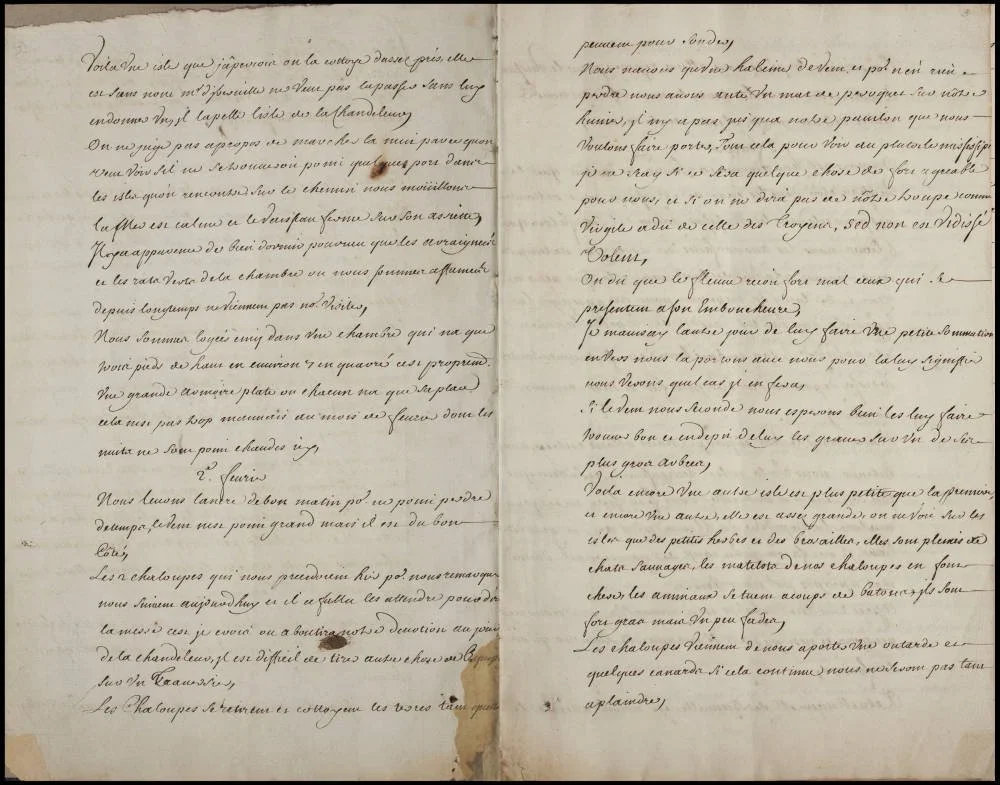 Voila Vne isle que j'apercois on la cottoye dassez prés, elle
est sans nom mr d'iberuille ne Veut pas la passer sans luy
en donner Vn, il lapelle lisle de la Chandeleur,
On ne juge pas apropos de marcher la nuit parce quon
Veut Voir sil ne se trouueroit point quelque port dans
les isles quon rencontre sur le chemin nous moüillons
la Mer est calme et le Vaisseau ferme sur son assiette,
Il y a apparence de bien dormir pourueu que les
et les rats de la chambre ou nous sommes affamez
depuis longtemps ne Viennent pas nos Visiter,
Nous sommes logées cinq dans Vne chambre qui na que
trois pieds de haut en environ 7 en quarré cest proprement
Vne grande armoire plate ou chacun na que sa place
cela nest pas trop mauuais au mois de feurier dont les
nuits ne sont point chaudes icy,
2e. feurier
Nous leuons lancre de bon matin por. ne point perdre
de temps, le Vent nest point grand mais il est du bon
Côté,
Les 2 chaloupes qui nous precedoient hier por. nous remarquer
nous suiuent aujourdhuy et il a fallu les attendre pour dire
la messe cest je crois ou aboutira notre deuotion au jour
de la chandeleur, il est difficil de tirer autre chose de
sur Vn
Les Chaloupes se retirent et cottoyent les terres tant quelles
peuuent pour sonder,
Nous nauons quVne haleine de Vent et por. n'en rien
perdre nous auons anté Vn mat de peroquet sur nôtre
hunier, il ny a pas jusqua notre pauillon que nous
Voulons faire porter, Tout cela pour Voir au plutot le missisipi
je ne scay si ce sera quelque chose de fort agreable
pour nous, et si on ne dira pas de nôtre troupe comme
Virgile a dit de celle des Troyens, sed non et Vidisse
Volent,
On dit que le fleuue recoit fort mal ceux qui se
presentent a son Emboucheure,
Je mauisay lautre jour de luy faire Vne petite sommation
en Vers nous la portons auec nous pour la luy signiffier
nous Verons quel cas il en fera,
Si le Vent nous seconde nous esperons bien les luy faire
trouuer bon et en depit de luy les grauer sur Vn de ses
plus gros arbres,
Voila encore Vne autre isle est plus petite que la premiere,
et encore Vne autre, elle est assez grande, on ne Voit sur les
isles que des petites herbes et des brosailles, elles sont pleines de
chats sauuages, les matelots de nos chaloupes en font
chere, les animaux se tuent a coups de batons, ils sont
fort gras mais Vn peu fades,
Les chaloupes Viennent de nous aporter Vne outarde et
quelques canards si cela continue, nous ne serons pas tant
a plaindre,